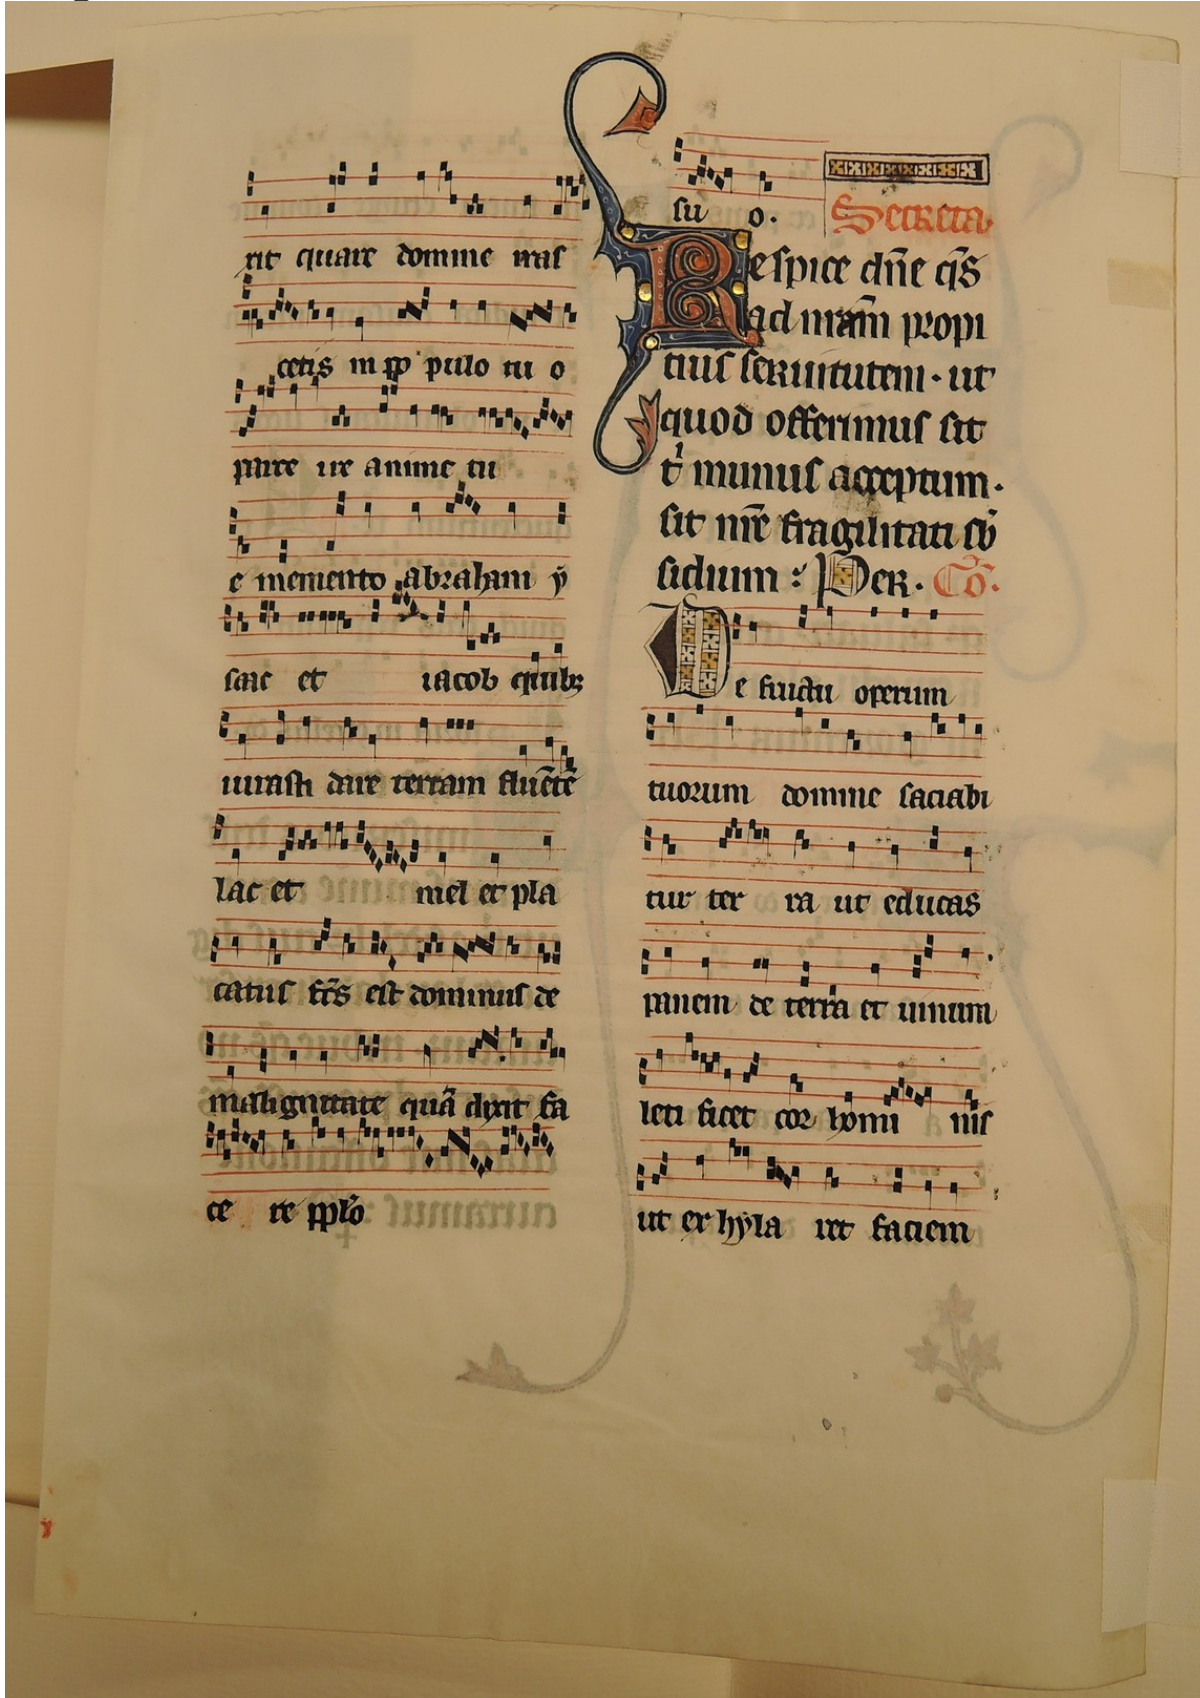 xit quare domine iras
ceris in pp pulo tu o
parce ire anime tu
e memento abraham ẏ
saac et iacob quibꝫ
iurasti dare terram fluẽtẽ
lac et mel et pla
catus fc̃s est dominus de
malignitate quã dixit fa
ce re pplo
su o.
Secreta
Respice dñe q̃s
ad nr̃am propi
tius seruitutem. ut
quod offerimus sit
t' munus acceptum.
sit nr̃e fragilitati sb̃
sidium : Per. Cõ.
De fructu operum
tuorum domine saciabi
tur ter ra ut educas
panem de terra et uinum
leti ficet cor homi nis
ut ex hyla ret faciem